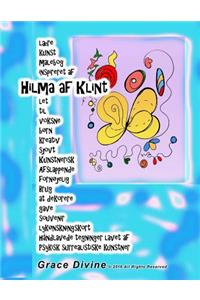 Laere
Kunst
Malebog
inspireret af
Hilma af Klint
Let
til
voksne
born
kreativ
sjovt
Kunstnerisk
Afslappende
Fornojelig
Brug
at dekorere
gave
souvenir
Lykonskningskort
Handlavede tegninger lavet af
Psykisk surrealistiske Kunstner
Grace Divine © 2016 All Rights Reserved